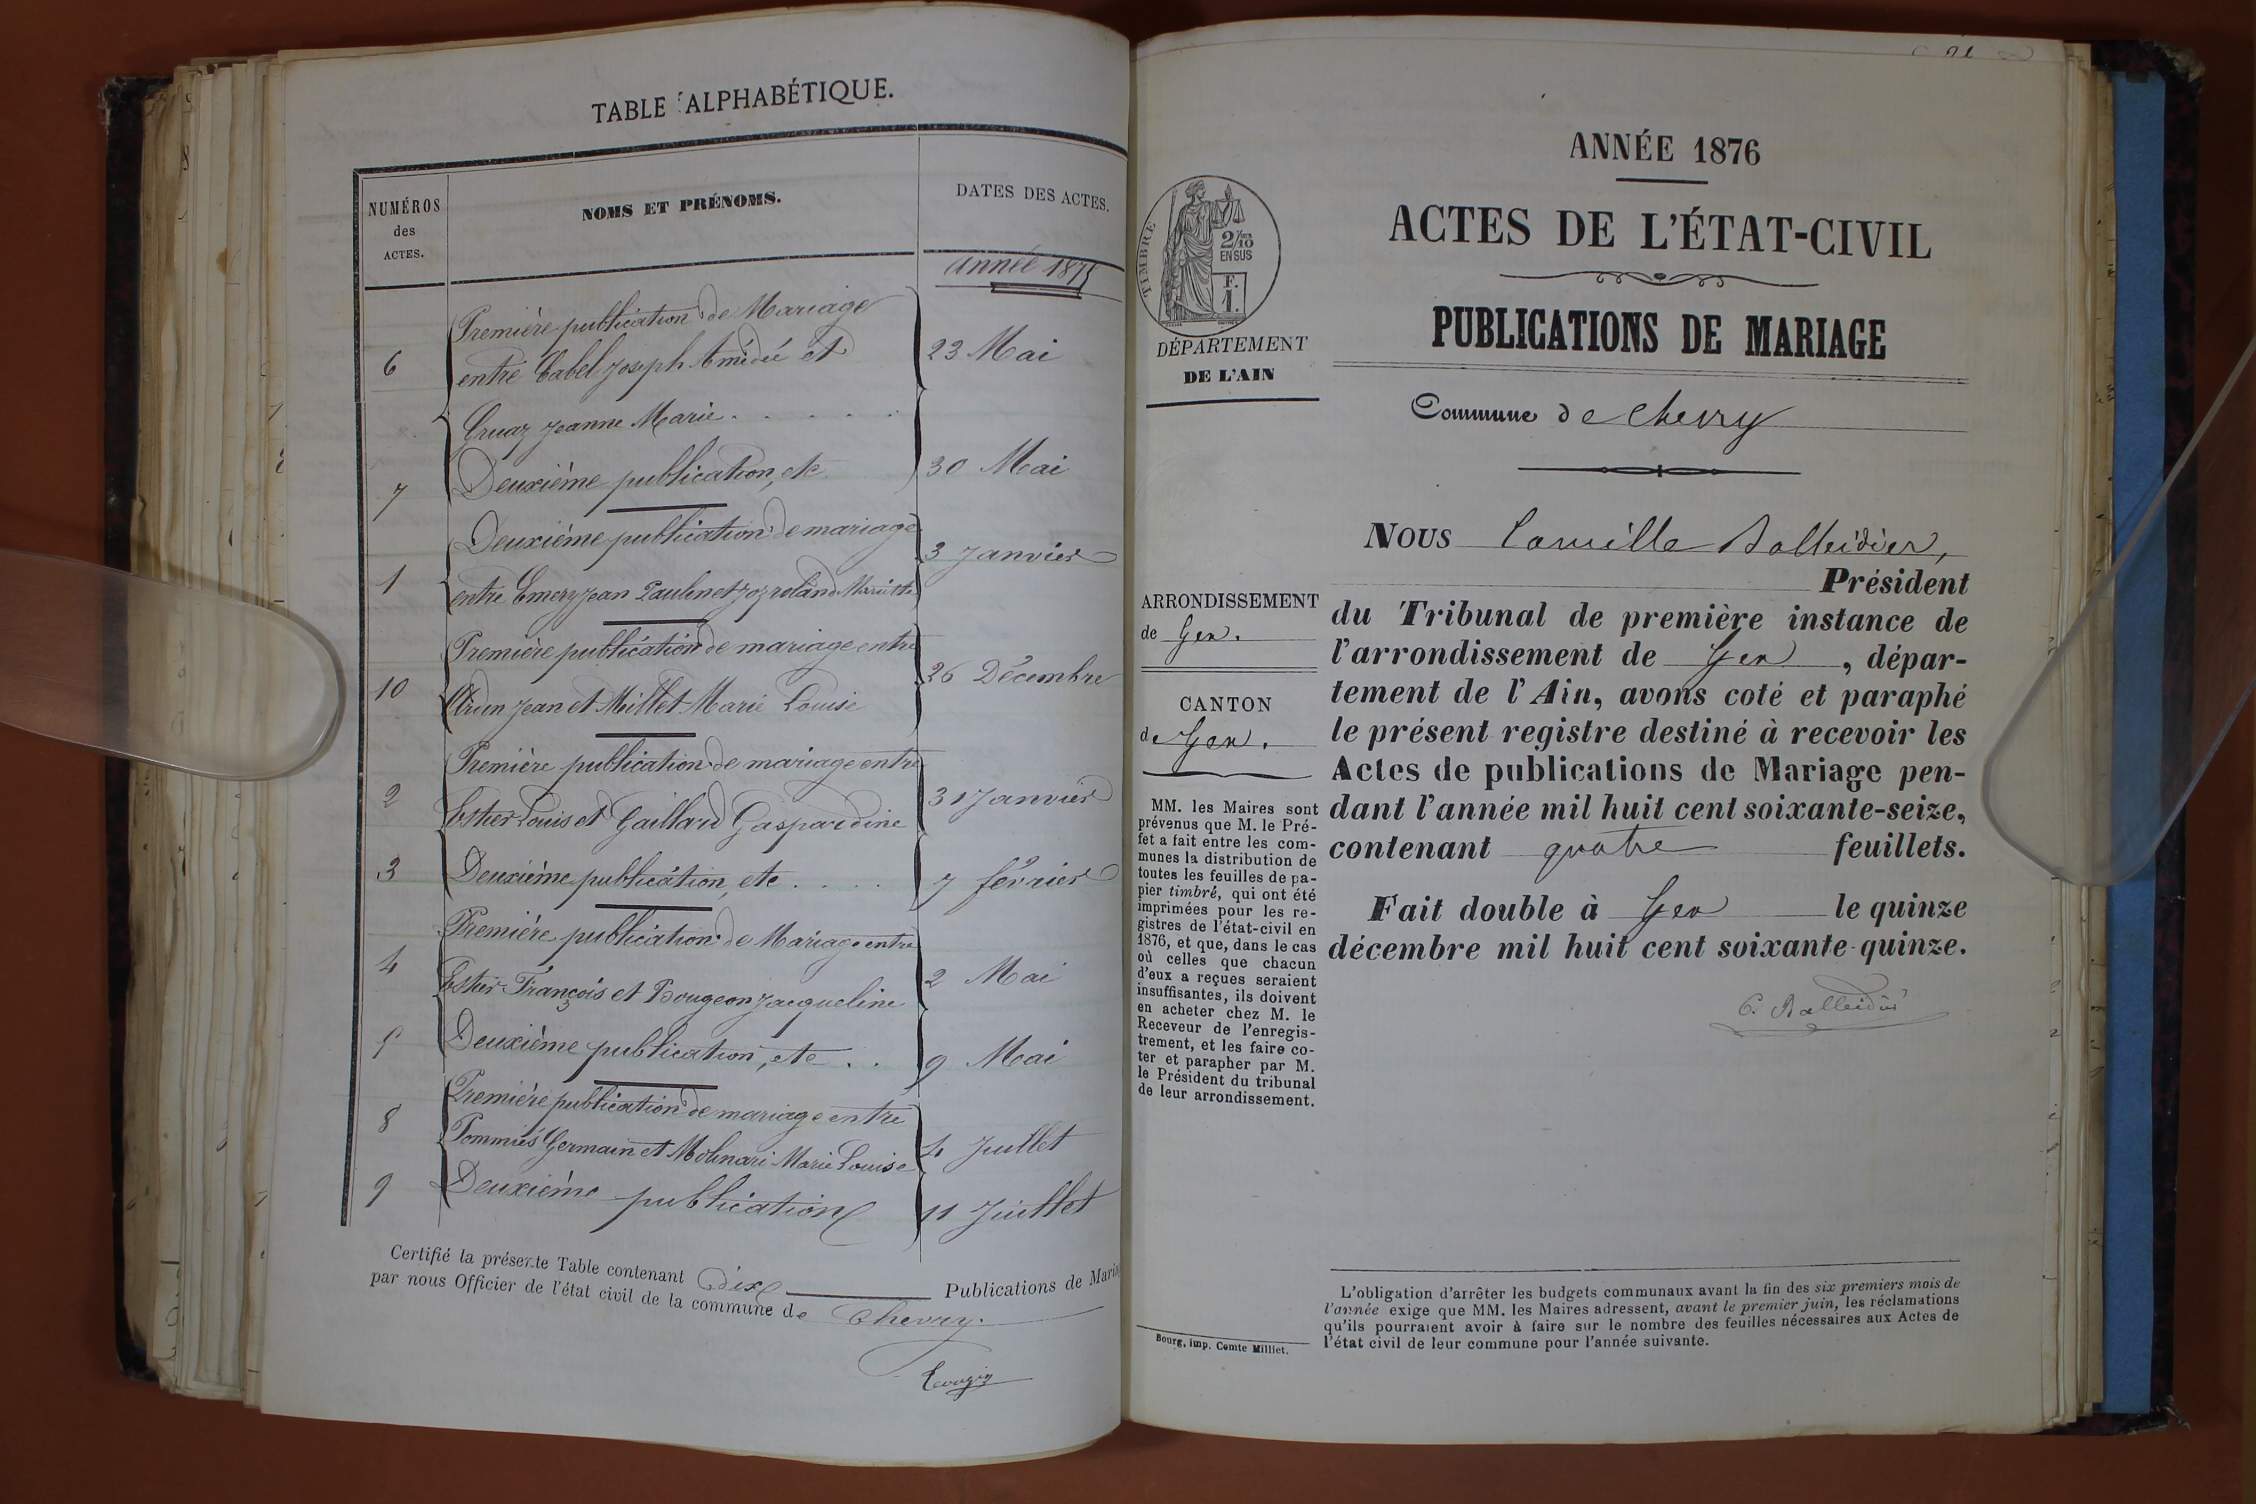 TABLE ALPHABÉTIQUE.
NUMÉROS
des
ACTES.
NOMS ET PRÉNOMS.
DATES DES ACTES.
année 1875
Première publication de Mariage
6 entre Cabel Joseph Amédée et 23 Mai
Gruaz Jeanne Marie . . . . . .
7 Deuxième publication, etc 30 Mai
Deuxième publication de mariage
1 entre Emery Jean Paul et Marie 3 Janvier
Première publication de mariage entre
10 Jean et Millet Marie Louise 26 Décembre
Première publication de mariage entre
2 Estier Louis et Gaillard Gaspardine 31 Janvier
3 Deuxième publication, etc . . . . 7 février
Première publication de Mariage entre
4 Estier François et Bougeon Jacqueline 2 Mai
5 Deuxième publication, etc . . 9 Mai
Première publication de mariage entre
8 Pommiés Germain et Molinari Marie Louise 4 Juillet
9 Deuxième publication 11 Juillet
Certifié la présente Table contenant dix Publications de Maria
par nous Officier de l'état civil de la commune de Chevry.
ANNÉE 1876
ACTES DE L'ÉTAT-CIVIL
PUBLICATIONS DE MARIAGE
TIMBRE
2/10
EN SUS
F.
1.
DÉPARTEMENT
DE L'AIN
Commune de Chevry
ARRONDISSEMENT
de Gex.
CANTON
de Gex.
MM. les Maires sont
prévenus que M. le Pré-
fet a fait entre les com-
munes la distribution de
toutes les feuilles de pa-
pier timbré, qui ont été
imprimées pour les re-
gistres de l'état-civil en
1876, et que, dans le cas
où celles que chacun
d'eux a reçues seraient
insuffisantes, ils doivent
en acheter chez M. le
Receveur de l'enregis-
trement, et les faire co-
ter et parapher par M.
le Président du tribunal
de leur arrondissement.
Bourg, imp. Comte Milliet.
NOUS Camille Balleidier,
Président
du Tribunal de première instance de
l'arrondissement de Gex, dépar-
tement de l'Ain, avons coté et paraphé
le présent registre destiné à recevoir les
Actes de publications de Mariage pen-
dant l'année mil huit cent soixante-seize,
contenant quatre feuillets.
Fait double à Gex le quinze
décembre mil huit cent soixante-quinze.
C. Balleidier
L'obligation d'arrêter les budgets communaux avant la fin des six premiers mois de
l'année exige que MM. les Maires adressent, avant le premier juin, les réclamations
qu'ils pourraient avoir à faire sur le nombre des feuilles nécessaires aux Actes de
l'état civil de leur commune pour l'année suivante.